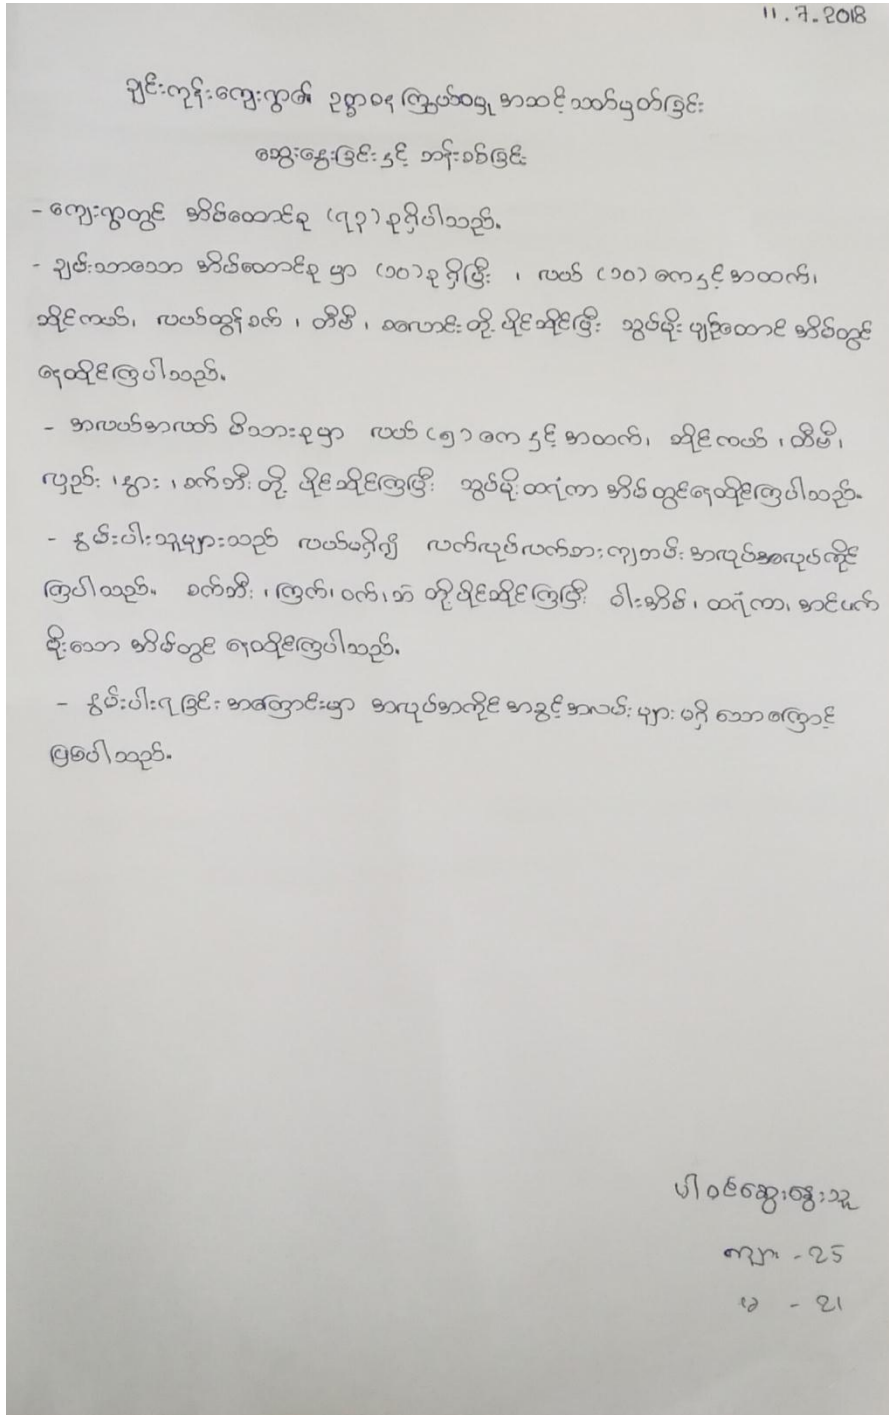 11.7.2018
ချင်းကုန်းကျေးရွာ၏ ဥစ္စာဓန ကြွယ်ဝမှု အဆင့်သတ်မှတ်ခြင်း
ဆွေးနွေးခြင်းနှင့် ဆန်းစစ်ခြင်း
- ကျေးရွာတွင် အိမ်ထောင်စု (၇၃) စုရှိပါသည်။
- ချမ်းသာသော အိမ်ထောင်စု မှာ (၁၀) စု ရှိပြီး ၊ လယ် (၁၀) ဧကနှင့်အထက်၊
ဆိုင်ကယ်၊ လယ်ထွန်စက် ၊ တီဗီ ၊ စလောင်းတို့ ပိုင်ဆိုင်ပြီး သွပ်မိုး ပျဉ်ထောင် အိမ်တွင်
နေထိုင်ကြပါသည်။
- အလယ်အလတ် မိသားစုမှာ လယ် (၅) ဧက နှင့်အထက်၊ ဆိုင်ကယ် ၊ တီဗီ ၊
လှည်း ၊ နွား ၊ စက်ဘီး တို့ ပိုင်ဆိုင်ကြပြီး သွပ်မိုး ထရံကာ အိမ်တွင်နေထိုင်ကြပါသည်။
- နွမ်းပါးသူများသည် လယ်မရှိ၍ လက်လုပ်လက်စား ကျဘမ်း အလုပ်အလုပ်ကိုင်
ကြပါသည်။ စက်ဘီး ၊ ကြက်၊ ဝက်၊ ဘဲ တို့ ပိုင်ဆိုင်ကြပြီး ဝါးအိမ် ၊ ထရံကာ၊ အင်ဖက်
မိုးသော အိမ်တွင် နေထိုင်ကြပါသည်။
- နွမ်းပါးရခြင်း အကြောင်းမှာ အလုပ်အကိုင် အခွင့်အလမ်း များ မရှိ သောကြောင့်
ဖြစ်ပါသည်။
ပါဝင်ဆွေးနွေးသူ
ကျား - 25
မ - 21